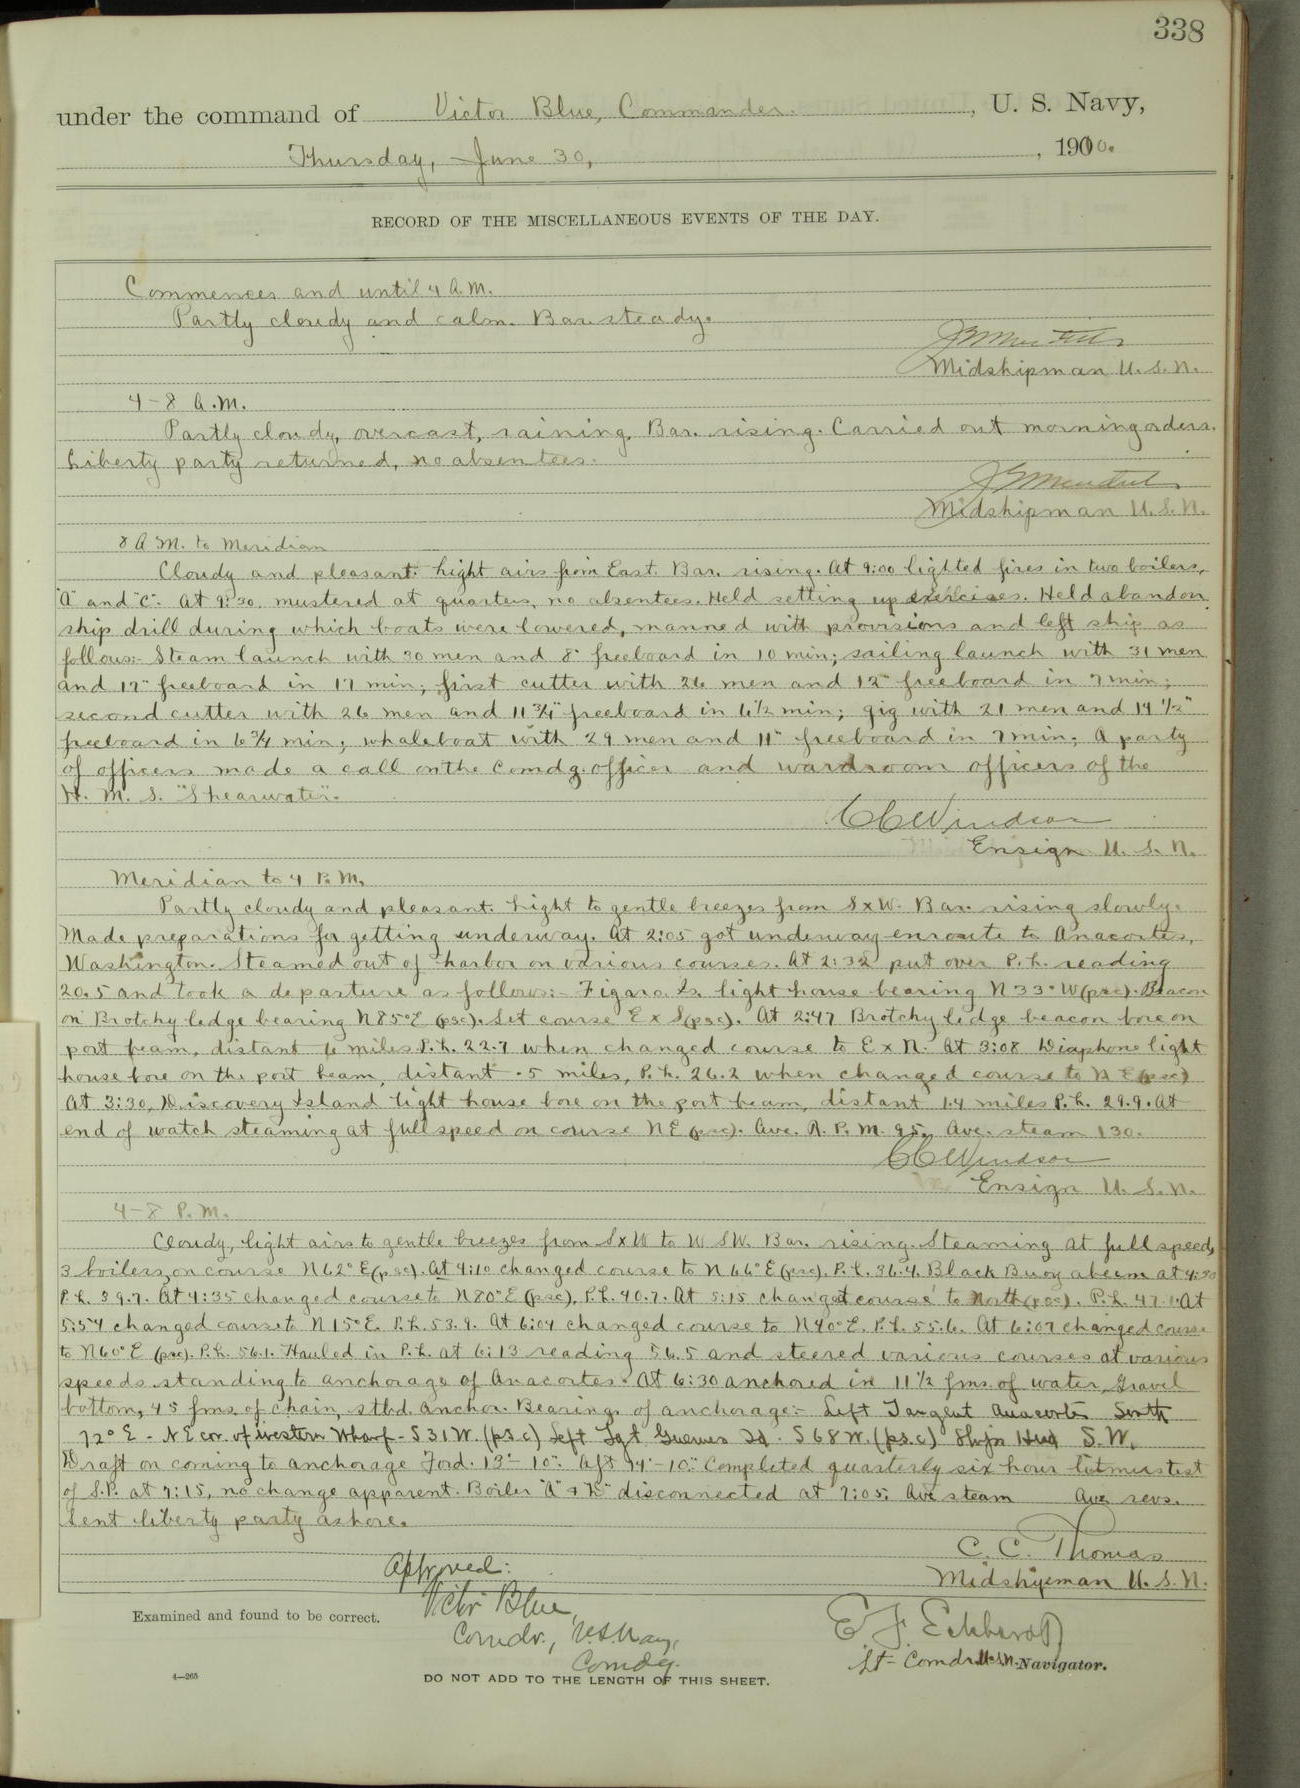 338
under the command of Victor Blue, Commander. , U. S. Navy,
Thursday, June 30, , 1910.
RECORD OF THE MISCELLANEOUS EVENTS OF THE DAY.
Commences and until 4 A.M.
Partly cloudy and calm. Bar. steady.
Midshipman U.S.N.
4-8 A.M.
Partly cloudy, overcast, raining. Bar. rising. Carried out morning orders.
Liberty party returned, no absentees.
Midshipman U.S.N.
8 A.M. to Meridian
Cloudy and pleasant. Light airs from East. Bar. rising. At 9:00 lighted fires in two boilers,
"A" and "C". At 9:30 mustered at quarters, no absentees. Held setting up exercises. Held abandon
ship drill during which boats were lowered, manned with provisions and left ship as
follows:- Steam launch with 30 men and 8" freeboard in 10 min; sailing launch with 31 men
and 17" freeboard in 17 min; first cutter with 26 men and 12" freeboard in 7 min;
second cutter with 26 men and 11 3/4" freeboard in 6 1/2 min; gig with 21 men and 14 1/2"
freeboard in 6 3/4 min; whaleboat with 29 men and 11" freeboard in 7 min; A party
of officers made a call on the Comdg. officer and wardroom officers of the
H. M. S. "Shearwater".
C C Windsor
Ensign U. S. N.
Meridian to 4 P.M.
Partly cloudy and pleasant. Light to gentle breezes from SxW. Bar. rising slowly.
Made preparations for getting underway. At 2:05 got underway enroute to Anacortes,
Washington. Steamed out of harbor on various courses. At 2:32 put over P.L. reading
20.5 and took a departure as follows:- Figaro Is. light house bearing N 33° W (psc). Beacon
on Brotchy ledge bearing N 85° E (psc). Set course E x S (psc). At 2:47 Brotchy ledge beacon bore on
port beam, distant miles P.L. 22.7 when changed course to E x N. At 3:08 Diaphone light
house bore on the port beam, distant .5 miles, P.L. 26.2 when changed course to N E (psc)
At 3:30, Discovery Island light house bore on the port beam, distant 1.4 miles P.L. 29.9. At
end of watch steaming at full speed on course NE (psc). Ave. R. P. M. 95. Ave. steam 130.
C C Windsor
Ensign U. S. N.
4-8 P.M.
Cloudy, light airs to gentle breezes from SxW to W SW. Bar. rising. Steaming at full speed,
3 boilers, on course N 62° E (psc). At 4:10 changed course to N 66° E (psc). P.L. 36.4. Black Buoy abeam at 4:30
P.L. 39.7. At 4:35 changed course to N 80° E (psc), P.L. 40.7. At 5:15 changed course to North (psc). P.L. 47.1. At
5:54 changed course to N 15° E. P.L. 53.9. At 6:04 changed course to N 40° E. P.L. 55.6. At 6:07 changed course
to N 60° E (psc). P.L. 56.1. Hauled in P.L. at 6:13 reading 56.5 and steered various courses at various
speeds standing to anchorage of Anacortes. At 6:30 anchored in 11 1/2 fms. of water, gravel
bottom, 45 fms. of chain, stbd. anchor. Bearings of anchorage:- Left Tangent Anacortes South
72° E - NE cor. of western Wharf - S 31 W. (p.s.c) Left Tgt Guemes Id. S 68 W. (p.s.c) Ship's Head S.W.
Draft on coming to anchorage Ford. 13'-10". Aft 14'-10". Completed quarterly six hour litmus test
of S.P. at 7:15, no change apparent. Boiler "A" & disconnected at 7:05. Ave steam Ave revs.
Sent liberty party ashore.
C. C. Thomas
Midshipman U. S. N.
Approved:
Victor Blue,
Comdr., U.S. Navy,
Comdg.
Examined and found to be correct.
E. F. Eckhardt
Lt- Comdr. U.S.N. Navigator.
4—265
DO NOT ADD TO THE LENGTH OF THIS SHEET.